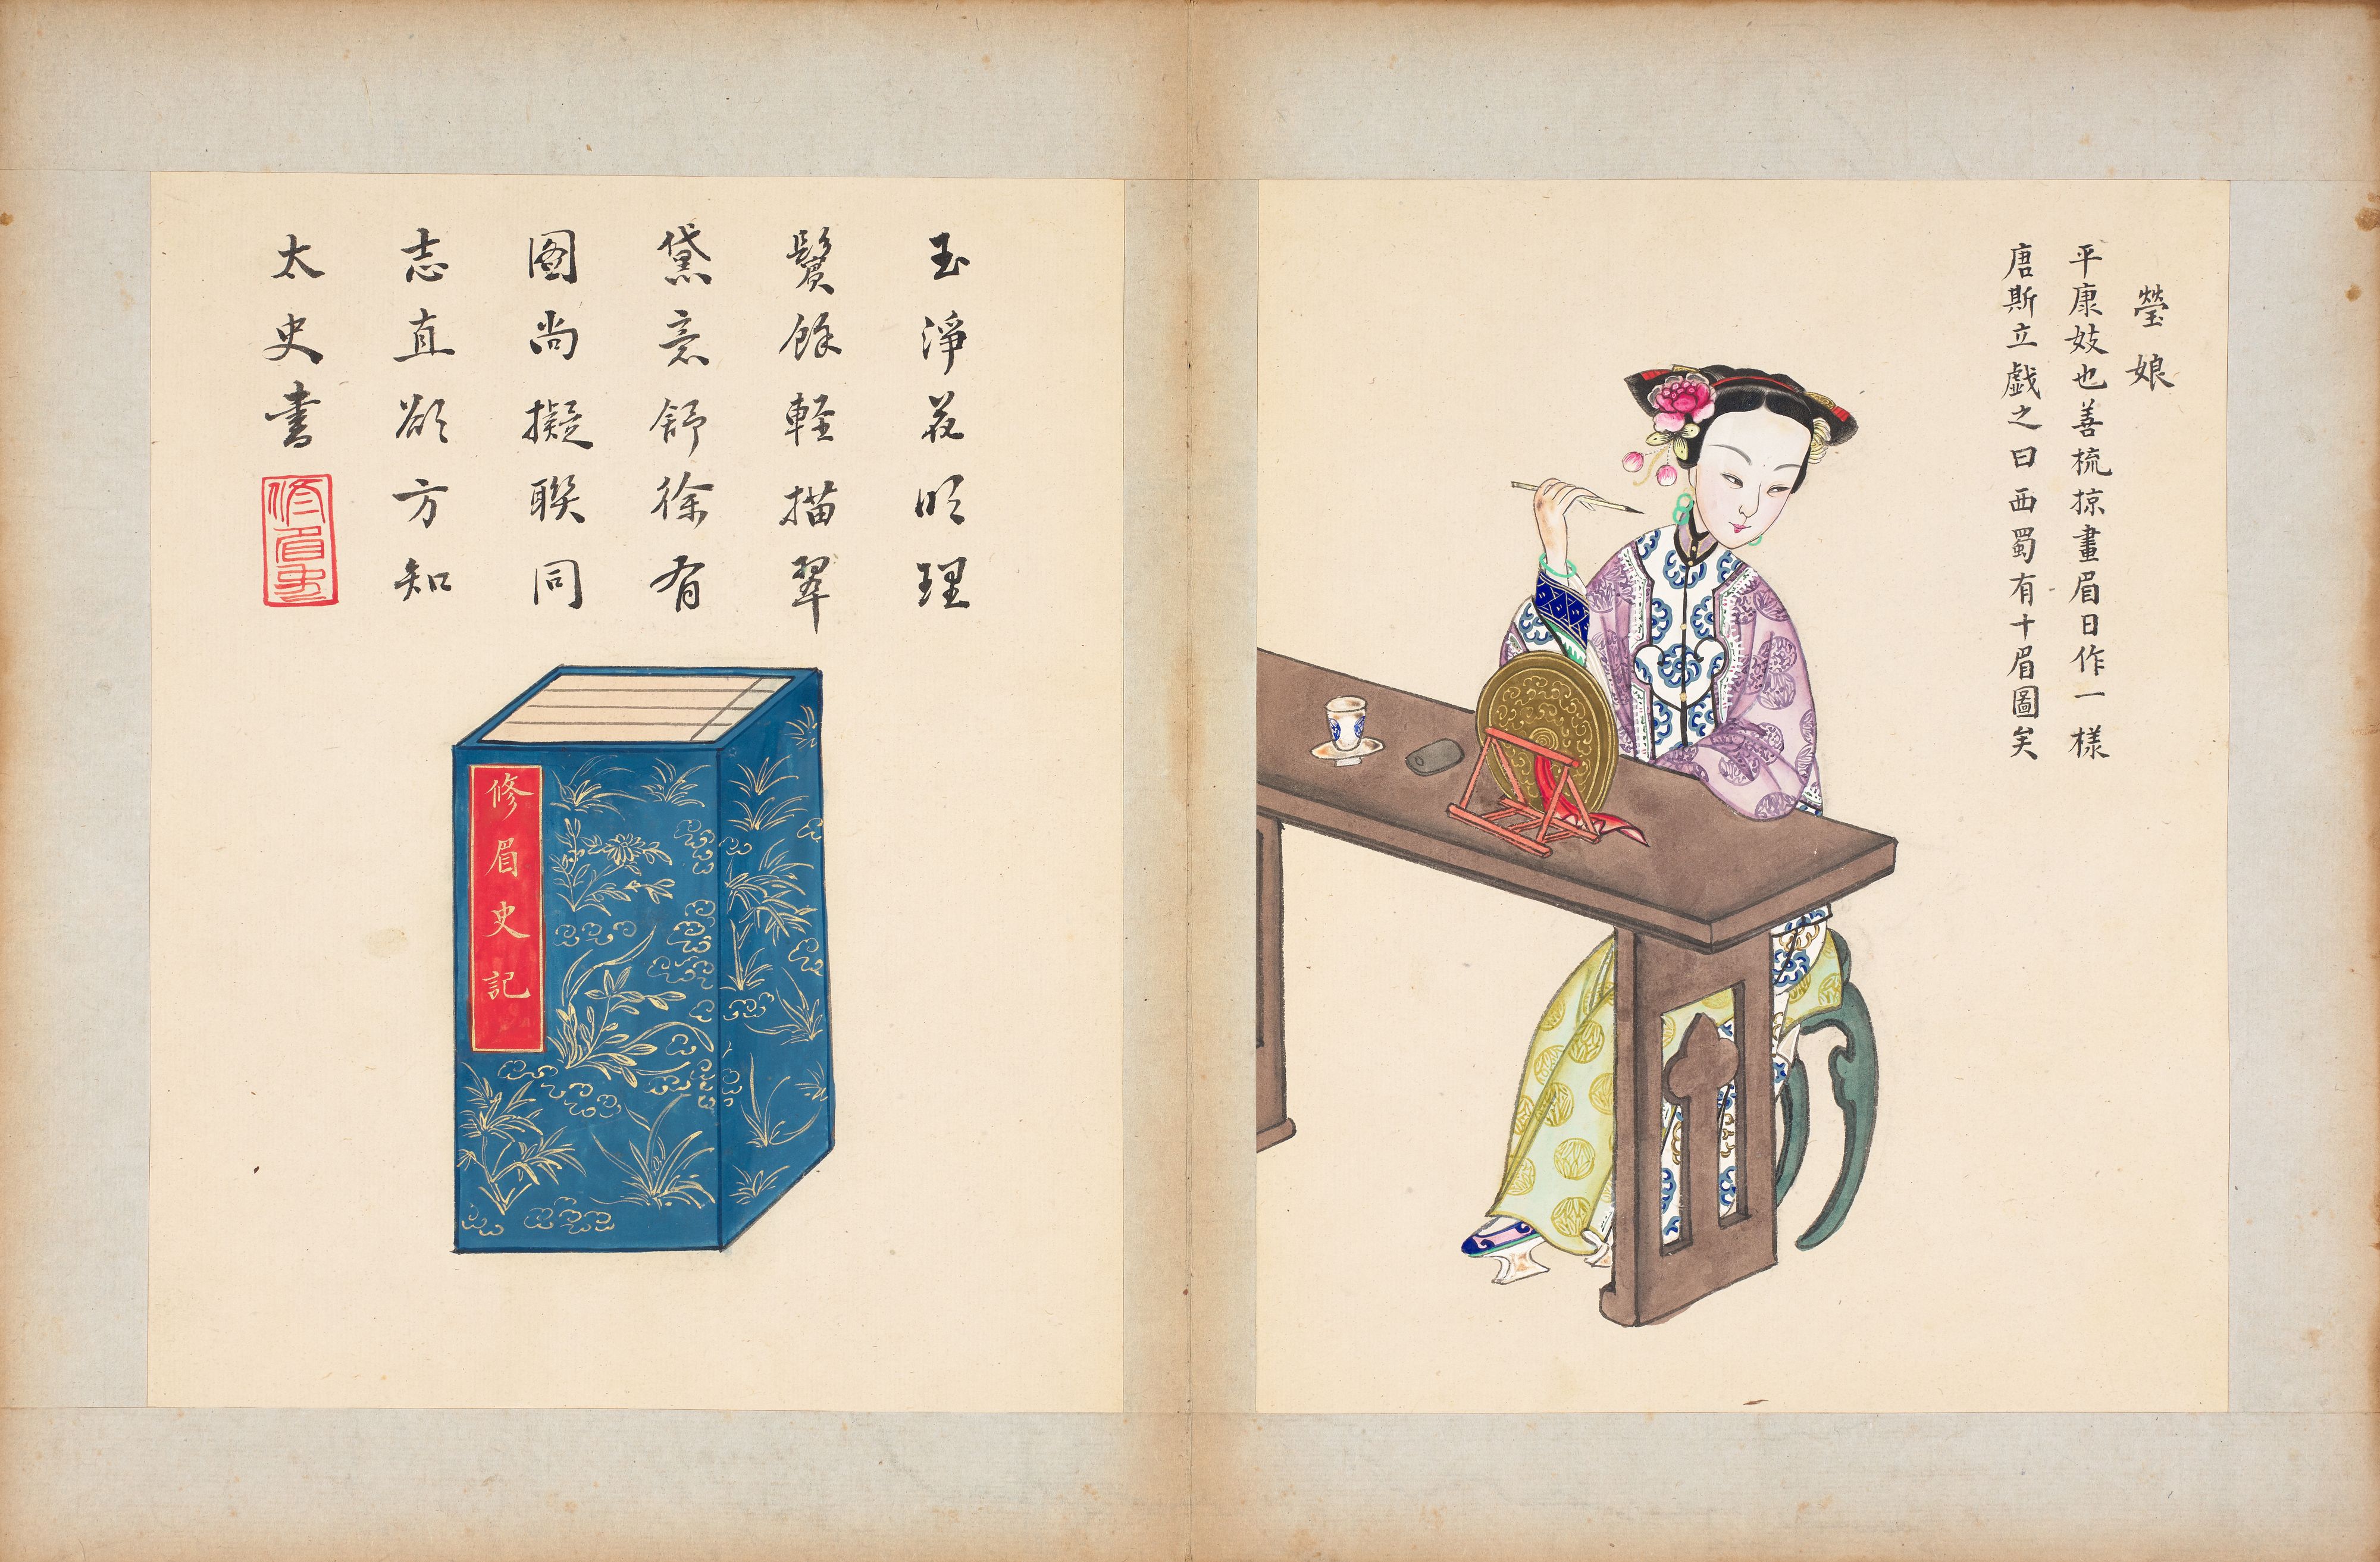 瑩娘
平康妓也善梳掠畫眉日作一樣
唐斯立戯之曰西蜀有十眉圖矣
玉淨花明理
鬢餘輕描翠
黛意舒徐有
图尚擬聯同
志直欲方知
太史書
修眉史
修眉史記